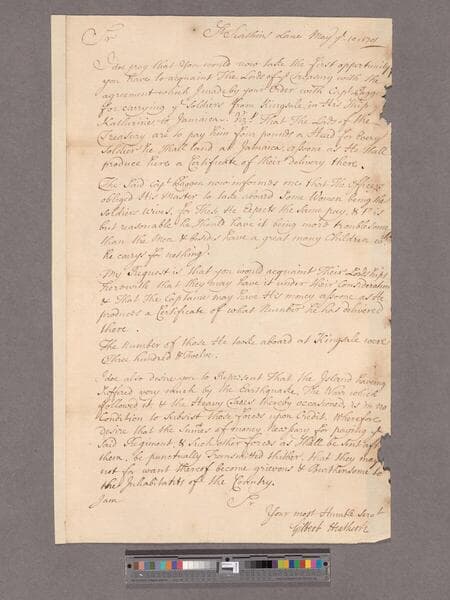 Sr St Swithins Lane May ye 10 1701
I doe pray that You would now take the first opportunity
you have to acquaint The Lords of ye Treasury with the
agreement which I made by your Order with Capt
for carrying ye Soldiers from Kingsale in His Ship
Katharine to Jamaica. Vizt That The Lords of the
Treasury are to pay him four pounds a Head for every
Soldier he shall land at Jamaica, assone as He shall
produce here a Certificate of their delivery there.
The Said Capt now informs me that The Officers
obliged His Master to take aboard Some Women being the
Soldiers Wives, for These He Expects the Same pay, & it is
but reasonable he should have it being more troublesome
than the Men & besides have a great many Children
he carys for nothing.
My Request is that you would acquaint Their Lordships
herewith that they may have it under their Consideration
& That the Captaine may have His money assone as He
produces a Certificate of what Number he has delivered
there.
The Number of those He tooke aboard at Kingsale were
three hundred & Twelve.
I doe also desire you to Represent That the Island having
Suffered very much by the Earthquake, The War which
followed it, & the Heavy Taxes thereby occasioned, is in no
Condition to Subsist those forces upon Credit. Wherefore
desire that the Summes of money Necessary for paying ye
Said Regiment & Such other forces as Shall be Sent
them, be punctually Transmitted thither, that they may
not for want thereof become grievous & Burthensome to
the Inhabitants of the Country.
I am Sr
Your most Humble Servt
Gilbert Heathcote